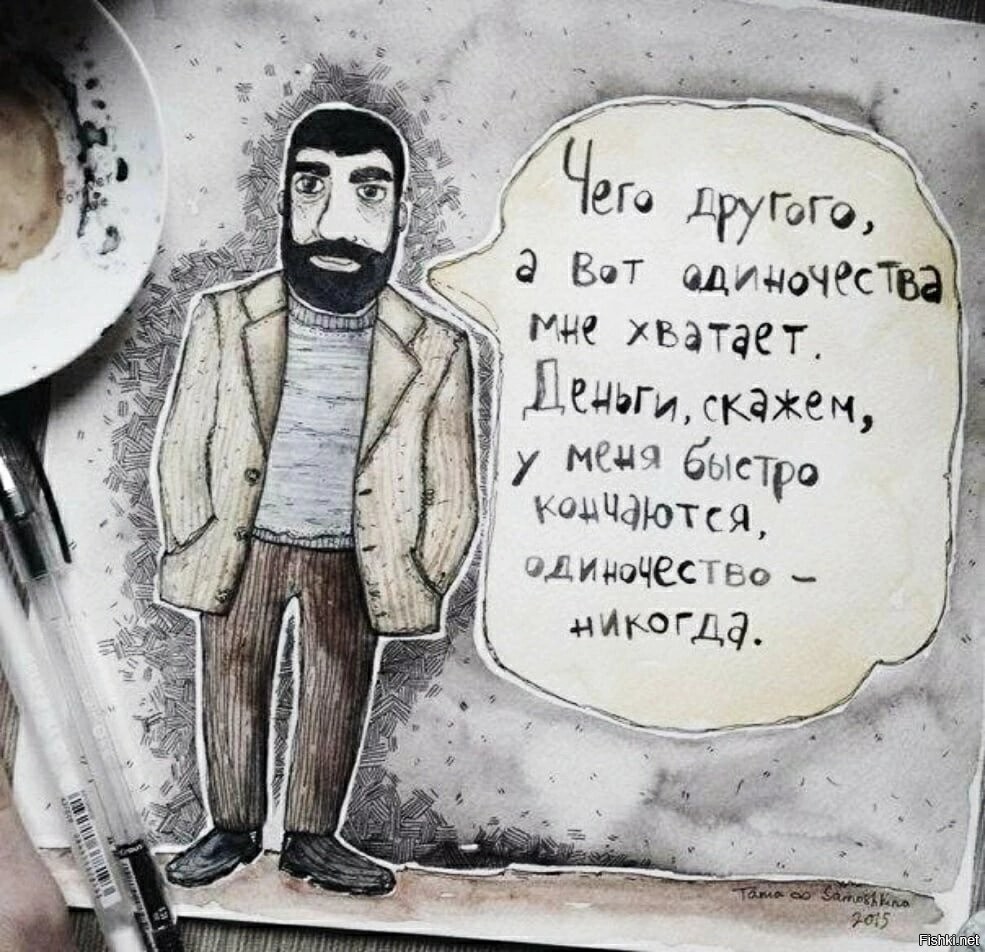 Чего другого,
а вот одиночества
мне хватает.
Деньги, скажем,
у меня быстро
кончаются,
одиночество –
никогда.
Tania ∞ Samoshkina
2015
Fishki.net